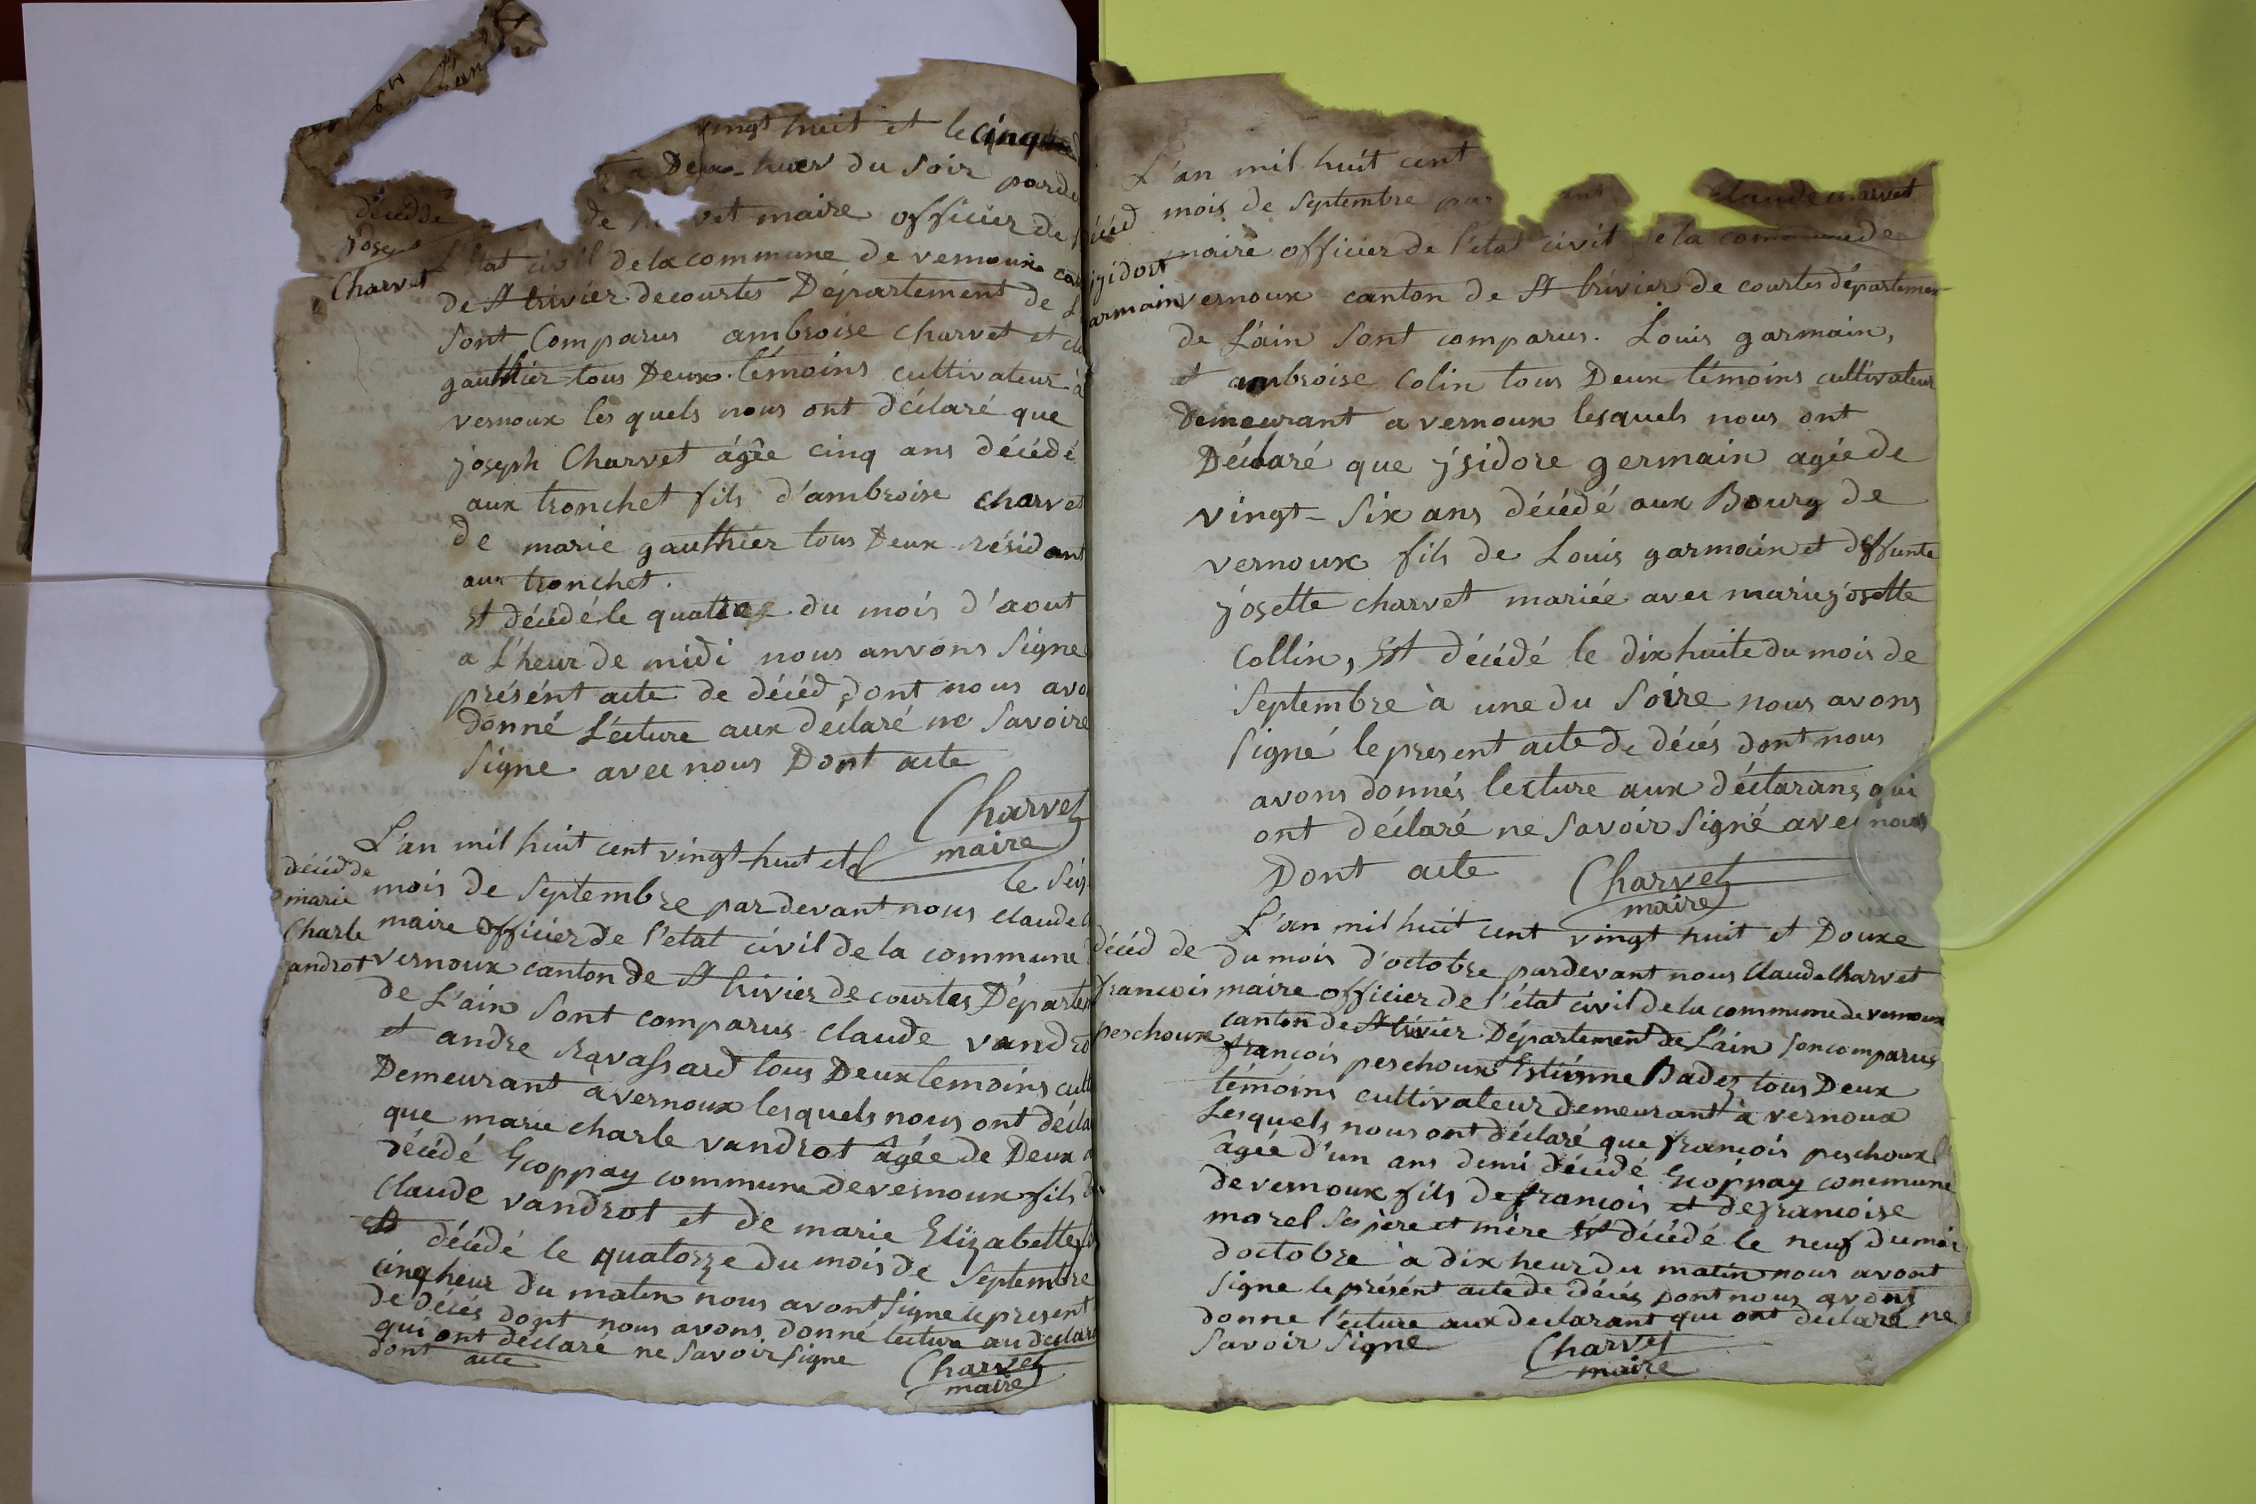 L'an
vingt huit et le cinq
a Deux huer du Soir parde
maire officier de
L'état civil de la commune de vernoux
de St trivier de courtes Département de
Sont Comparus ambroise charvet et
gauthier tous Deux témoins cultivateur à
vernoux les quels nous ont déclaré que
joseph Charvet âgêe cinq ans décédé
aux tronchet fils d'ambroise charvet
de marie gauthier tous Deux résidant
aux tronchet.
Et décédé le quatre du mois d'aout
a L'heur de midi nous anvons Signe
présént acte de décéd dont nous avo
donné L'ecture aux déclaré ne Savoire
Signe avec nous Dont acte
Charvet
maire
décéd de
joseph
Charvet
L'an mil huit cent vingt-huit et
le Seiz
mois de Septembre par devant nous claude
maire officier de l'etat civil de la commune
vernoux canton de St trivier de courtes Départem
de L'ain Sont comparus claude vandro
et andre Ravassard tous Deux temoins cult
Demeurant a vernoux lesquels nous ont décla
que marie charle vandrot âgée de Deux
décédé Ecoppay commune de vernoux fils
Claude vandrot et de marie Elizabette
Et décédé le quatorze du mois de Septembre
cinq heur du matin nous avont Signe le present
de décés dont nous avons donné lecture au declara
qui ont déclaré ne Savoir signe
dont acte
Charvet
maire
décéd de
marie
Charle
androt
L'an mil huit cent
mois de Septembre par claude charvet
maire officier de l'état civil de la commune de
vernoux canton de St trivier de courtes départemen
de L'ain Sont comparus. Louis garmain,
et ambroise Colin tous Deux témoins cultivateur
Demeurant a vernoux lesquels nous ont
Déclaré que jsidore germain agée de
vingt-Six ans décédé aux Bourg de
vernoux fils de Louis garmain et deffunte
josette charvet mariée avec marie josette
Collin, Est décédé le dix huite du mois de
Septembre à une du Soire nous avons
Signé le present acte de décés dont nous
avons donnés lecture aux déclarans qui
ont déclaré ne Savoir Signé avec nous
Dont acte
Charvet
maire
écéd
jzidort
armain
L'an mil huit cent vingt huit et Douxe
du mois d'octobre pardevant nous Claude Charvet
maire officier de l'état civil de la commune de vernoux
canton de St trivier Département de L'ain Son comparus
françois peschoux Estiénne Badez tous Deux
témoins cultivateur demeurant à vernoux
Lesquels nous ont déclaré que françois peschoux
âgée d'un ans demi décédé Ecopnay commune
de vernoux fils de françois et de francoise
morel Ses père et mère Est décédé le neuf du moi
doctobre à dix heur du matin nous avont
Signe le présént acte de décés dont nous avons
donne l'ecture aux declarant qui ont déclaré ne
Savoir Signe
Charvet
maire
décéd de
francois
peschoux